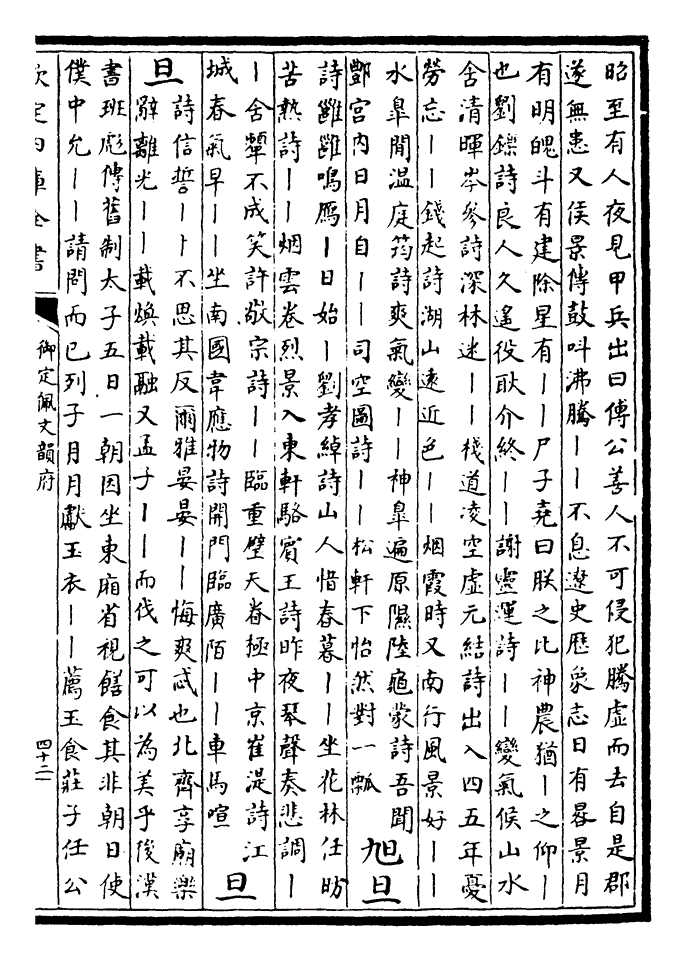 昭至有人夜見甲兵出曰傅公善人不可侵犯騰虛而去自是郡
遂無恙又侯景傳鼓叫沸騰丨丨不息遼史歷象志日有晷景月
有明魄斗有建除星有丨丨尸子堯曰朕之比神農猶丨之仰丨
也劉鑠詩良人久遙役耿介終丨丨謝靈運詩丨丨變氣候山水
含清暉岑參詩深林迷丨丨棧道凌空虛元結詩出入四五年憂
勞忘丨丨錢起詩湖山遠近色丨丨烟霞時又南行風景好丨丨
水臯閒温庭筠詩爽氣變丨丨神臯遍原隰陸龜蒙詩吾聞
酆宫内日月自丨丨司空圖詩丨丨松軒下怡然對一瓢
旭旦
詩雝雝鳴鴈丨日始丨劉孝綽詩山人惜春暮丨丨坐花林任昉
苦熱詩丨丨烟雲卷烈景入東軒駱賓王詩昨夜琴聲奏悲調丨
丨含顰不成笑許敬宗詩丨丨臨重壁天眷極中京崔湜詩江
城春氣早丨丨坐南國韋應物詩開門臨廣陌丨丨車馬喧
旦旦
詩信誓丨丨不思其反爾雅晏晏丨丨悔爽忒也北齊享廟樂
辭離光丨丨載煥載融又孟子丨丨而伐之可以為美乎後漢
書班彪傳舊制太子五日一朝因坐東廂省視饍食其非朝日使
僕中允丨丨請問而已列子月月獻玉衣丨丨薦玉食莊子任公
欽定四庫全書
御定佩文韻府
四十二